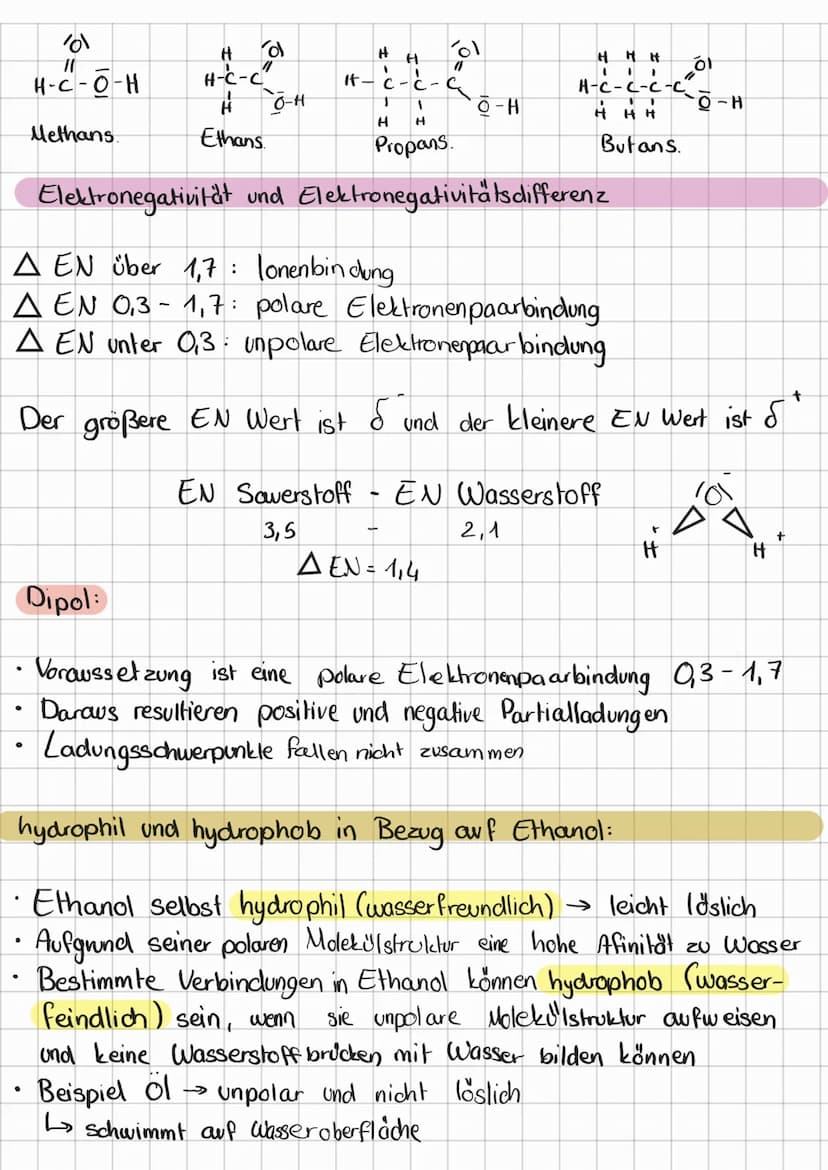 Methans. Ethans. Propans. Butans.
Elektronegativität und Elektronegativitätsdifferenz
Δ EN über 1,7 : Ionenbindung
Δ EN 0,3 - 1,7 : polare Elektronenpaarbindung
Δ EN unter 0,3 : unpolare Elektronenpaarbindung
Der größere EN Wert ist δ⁻ und der kleinere EN Wert ist δ⁺
EN Sauerstoff - EN Wasserstoff
3,5 - 2,1
Δ EN = 1,4
Dipol:
· Voraussetzung ist eine polare Elektronenpaarbindung 0,3 - 1,7
· Daraus resultieren positive und negative Partialladungen
· Ladungsschwerpunkte fallen nicht zusammen
hydrophil und hydrophob in Bezug auf Ethanol:
· Ethanol selbst hydrophil (wasserfreundlich) → leicht löslich
· Aufgrund seiner polaren Molekülstruktur eine hohe Afinität zu Wasser
· Bestimmte Verbindungen in Ethanol können hydrophob (wasser-
feindlich) sein, wenn sie unpolare Molekülstruktur aufweisen
und keine Wasserstoffbrücken mit Wasser bilden können
· Beispiel Öl → unpolar und nicht löslich
↳ schwimmt auf Wasseroberfläche